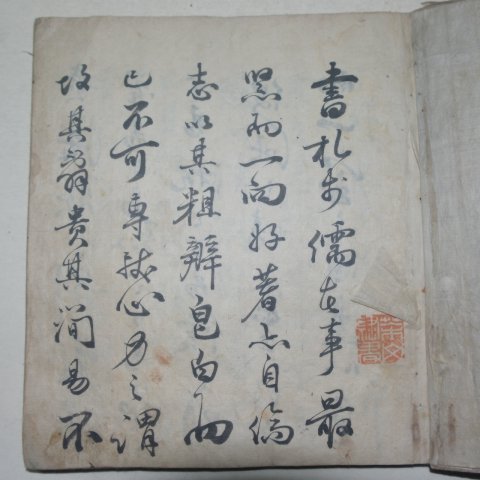 書札於儒者事最
累而一向好著亦自
志以其粗辨皂白而
已不可專心力之謂
故其翁貴其簡易不